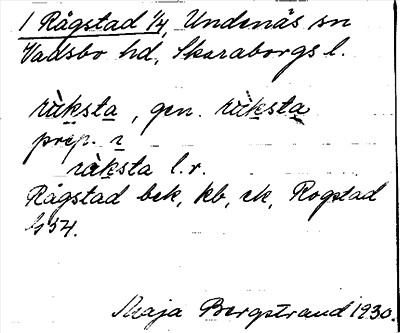 1 Rågstad 1/4, Undenäs sn
Vadsbo hd, Skaraborgs l.
ràksta, gen. ràksta
prep. i
ràksta l.r.
Rågstad bek, kb, ek, Rogstad
1/54.
Maja Bergstrand 1930.